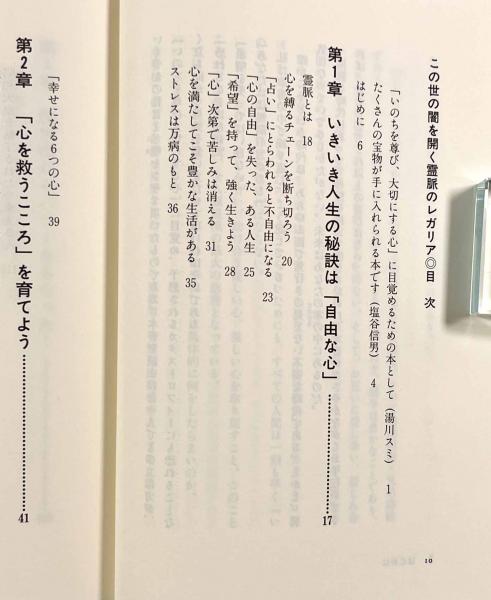 この世の闇を開く霊脈のレガリア◎目 次
「いのちを尊び、大切にする心」に目覚めるための本として（湯川スミ） 1
たくさんの宝物が手に入れられる本です（塩谷信男） 4
はじめに 6
第1章 いきいき人生の秘訣は「自由な心」……………………17
霊脈とは 18
心を縛るチェーンを断ち切ろう 20
「占い」にとらわれると不自由になる 23
「心の自由」を失った、ある人生 25
「希望」を持って、強く生きよう 28
「心」次第で苦しみは消える 31
心を満たしてこそ豊かな生活がある 35
ストレスは万病のもと 36
「幸せになる6つの心」 39
第2章 「心を救うこころ」を育てよう……………………41
10